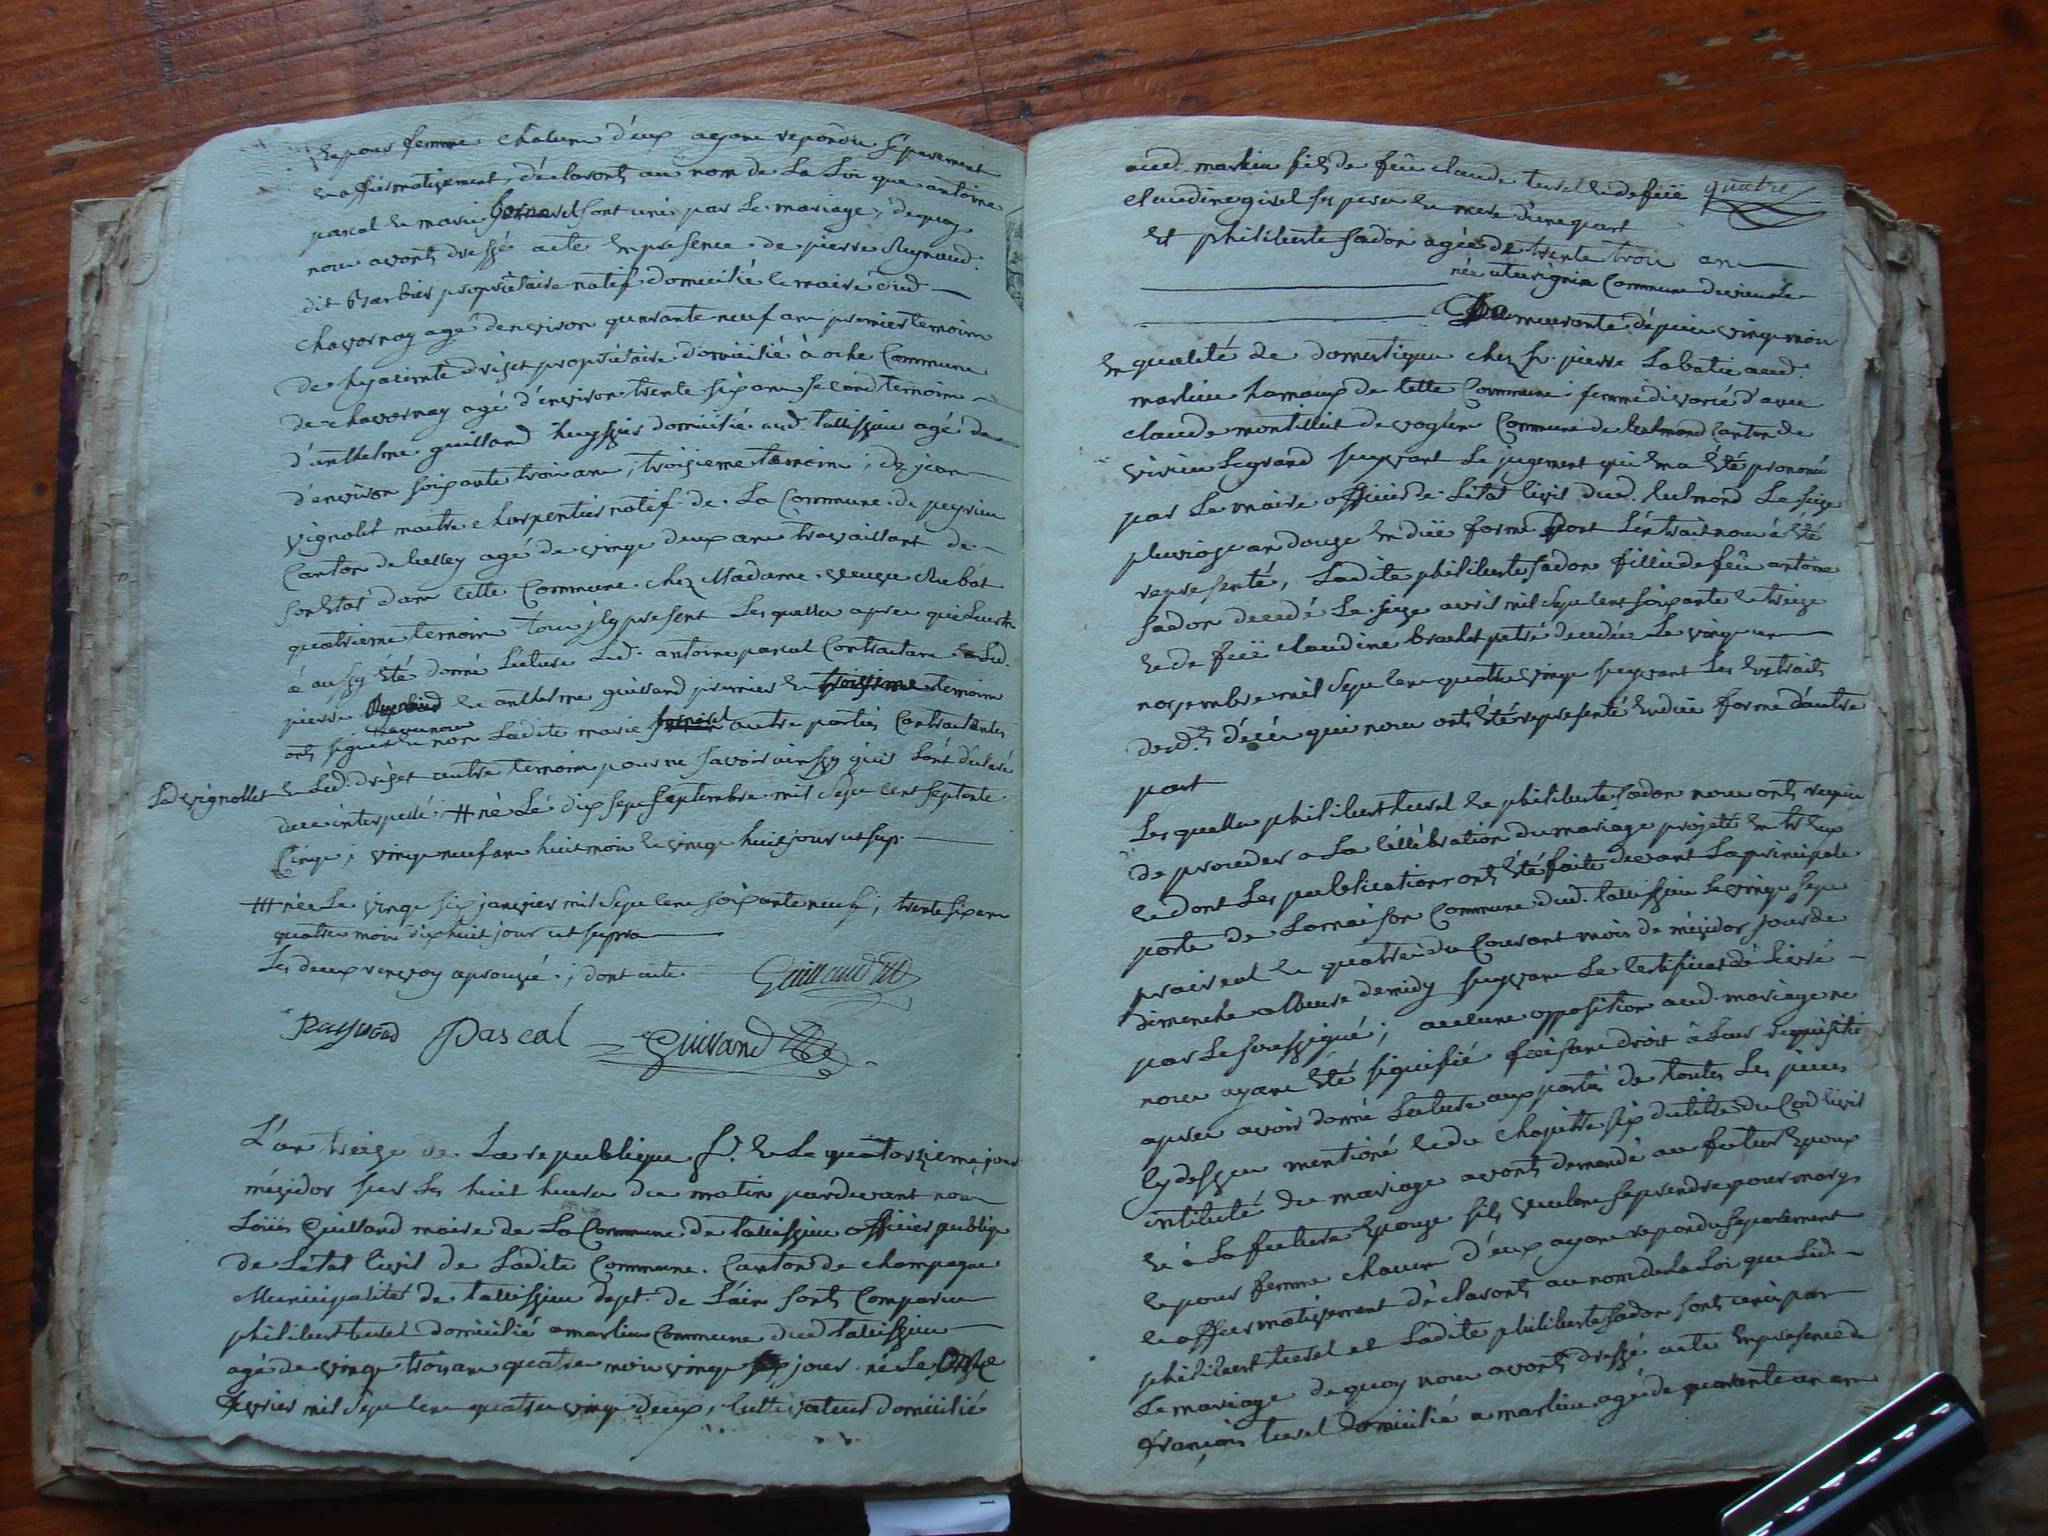 et pour femme chalum d'eux ayant repondu séparement
et affirmativement, déclaronts au nom de La Loi que antoine
pascal et marie bornarel sont unis par Le mariage, de quoy
nous avonts dressé acte en presence de pierre Reynaud
dit Barbier propriétaire natif domicilié et maire dud
chavornay agé d'environ quarante neuf ans premier temoin
de hyacinte drizet propriétaire domicilié à oche Commune
de chavornay agé d'environ trente six ans second temoin
d'anthelme guilland huissier domicilié aud. talissieu agé de
d'environ soixante trois ans, troisieme temoin, de jean
vignolet maitre charpentier natif de La Commune de peyrieu
Canton de belley agé de vingt deux ans travaillant de
son Etat dans cette Commune chez Madame veuve Rubat
quatrieme temoin tous jcy present Les quelles apres que Leurs
a aussy été donné Lecture Led. antoine pascal Contractant Led.
pierre Reynaud et anthelme guilland premier et troisieme temoin
onts signé et non Ladite marie bornarel autre parties Contractantes
Led vignollet et Led. drizet autre temoin pour ne savoir ainssy qu'ils L'ont déclaré
de ce interpellé # né Le dix sept septembre mil sept cent septente
Cinq, vingt neuf ans huit mois et vingt huit jour ut sup.
# née Le vingt six janvier mil sept cent soixante neuf, trente six ans
quatre mois dix huit jour ut supra
Les deux renvoy aprouvé, dont acte Guilland
Reynaud Pascal Guilland
L'an treize de La republique f. et Le quatorzieme jour
méssidor sur Les huit heures du matin pardevant nous
Loüis Guilland maire de La Commune de talissieu officier publique
de L'état Civil de Ladite Commune. Canton de champagne
Municipalités de talissieu dept. de L'ain sont Comparu
philibert turel domicilié a marlieu Commune dud talissieu
agé de vingt trois ans quatre mois vingt jour né Le onze
fevrier mil sept cent quatre vingt deux, Cultivateur domicilié
quatre
aud. marlieu fils de feu claude turel et de feüe
claudine girel ses pere et mere d'une part
Et philiberte sadon agée de trente trois ans
née a Commune de vieu Le
Demeurante dépuis vingt mois
en qualité de domestique chez Sr. pierre Labatie aud.
marlieu hamaux de cette Commune, femme divorcé d'avec
claude montillet de vogien Commune de belmond Canton de
virieu Legrand suyvant Le jugement qui en a été prononcé
par Le maire officier de L'état Civil dud. belmond Le seize
pluviose an douze en düe forme dont L'extrait nous à été
representé, Ladite philiberte sadon fillie de feu antoine
sadon decedé Le seize avril mil sept cent soixante et treize
et de feüe claudine brachet petré decedée Le vingt un
novembre mil sept cent quatre vingt suyvant Les Extraits
desd.ts décès qui nous onts été representé en düe forme d'autre
part
Les quelles philibert turel et philiberte sadon nous onts requis
de proceder a La Céllébration du mariage projeté entr'eux
et dont Les publications onts été faite devant La principale
porte de La maison Commune dud. talissieu Le vingt sept
prairial et quatre du Courant mois de méssidor jour de
dimenche alheure de midy suyvant Le Certificat délivré
par Le soussigné; aucune opposition aud. mariage ne
nous ayant été signifié faisant droit à Leur requisition
apres avoir donné Lecture aux parties de toutes Les pieces
cy dessus mentioné et du chapitre six du titre du Cod Civil
intitulé du mariage avonts demandé au futur Epoux
et à La future Epouse s'ils veulent se prendre pour mary
et pour femme chacun d'eux ayant repondu separement
et affirmativement déclaronts au nom de La Loi que Led.
philibert turel et Ladite philiberte sadon sont unis par
Le mariage de quoy nous avonts dressé acte En presence de
françois turel domicilié a marlieu agé de quarente un ans